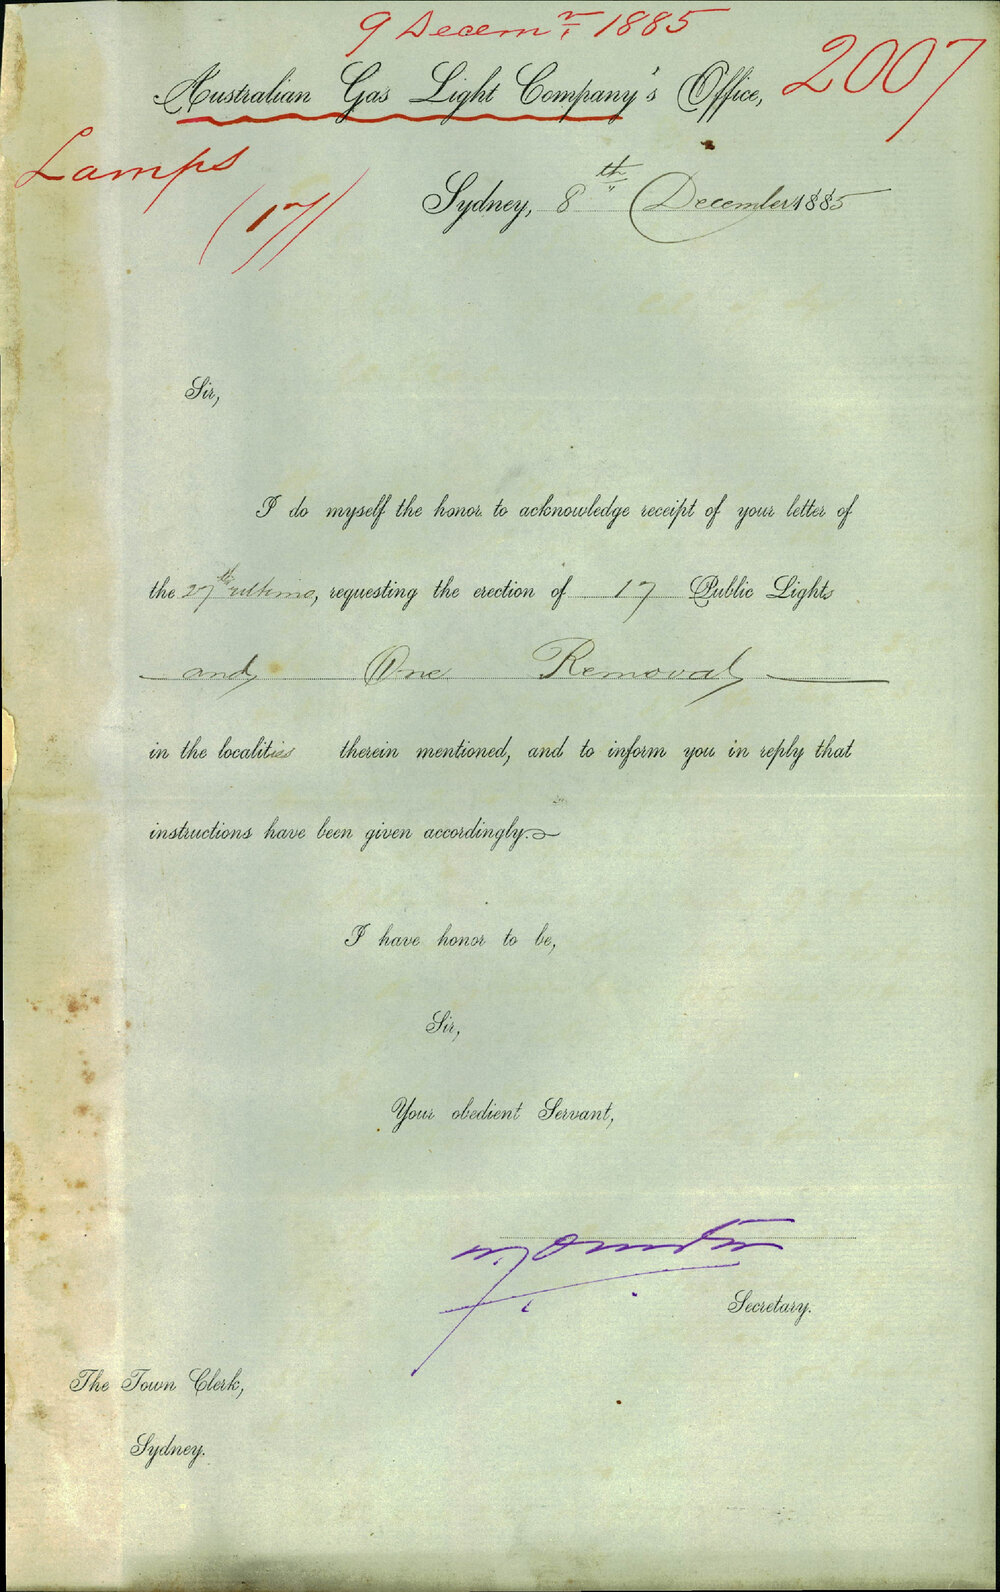 9 Decemr. 1885
2007
Australian Gas Light Company's Office,
Lamps
(17)
Sydney, 8th December 1885
Sir,
I do myself the honor to acknowledge receipt of your letter of
the 27th ultimo, requesting the erection of 17 Public Lights
and One Removal
in the localities therein mentioned, and to inform you in reply that
instructions have been given accordingly.
I have honor to be,
Sir,
Your obedient Servant,
Secretary.
The Town Clerk,
Sydney.